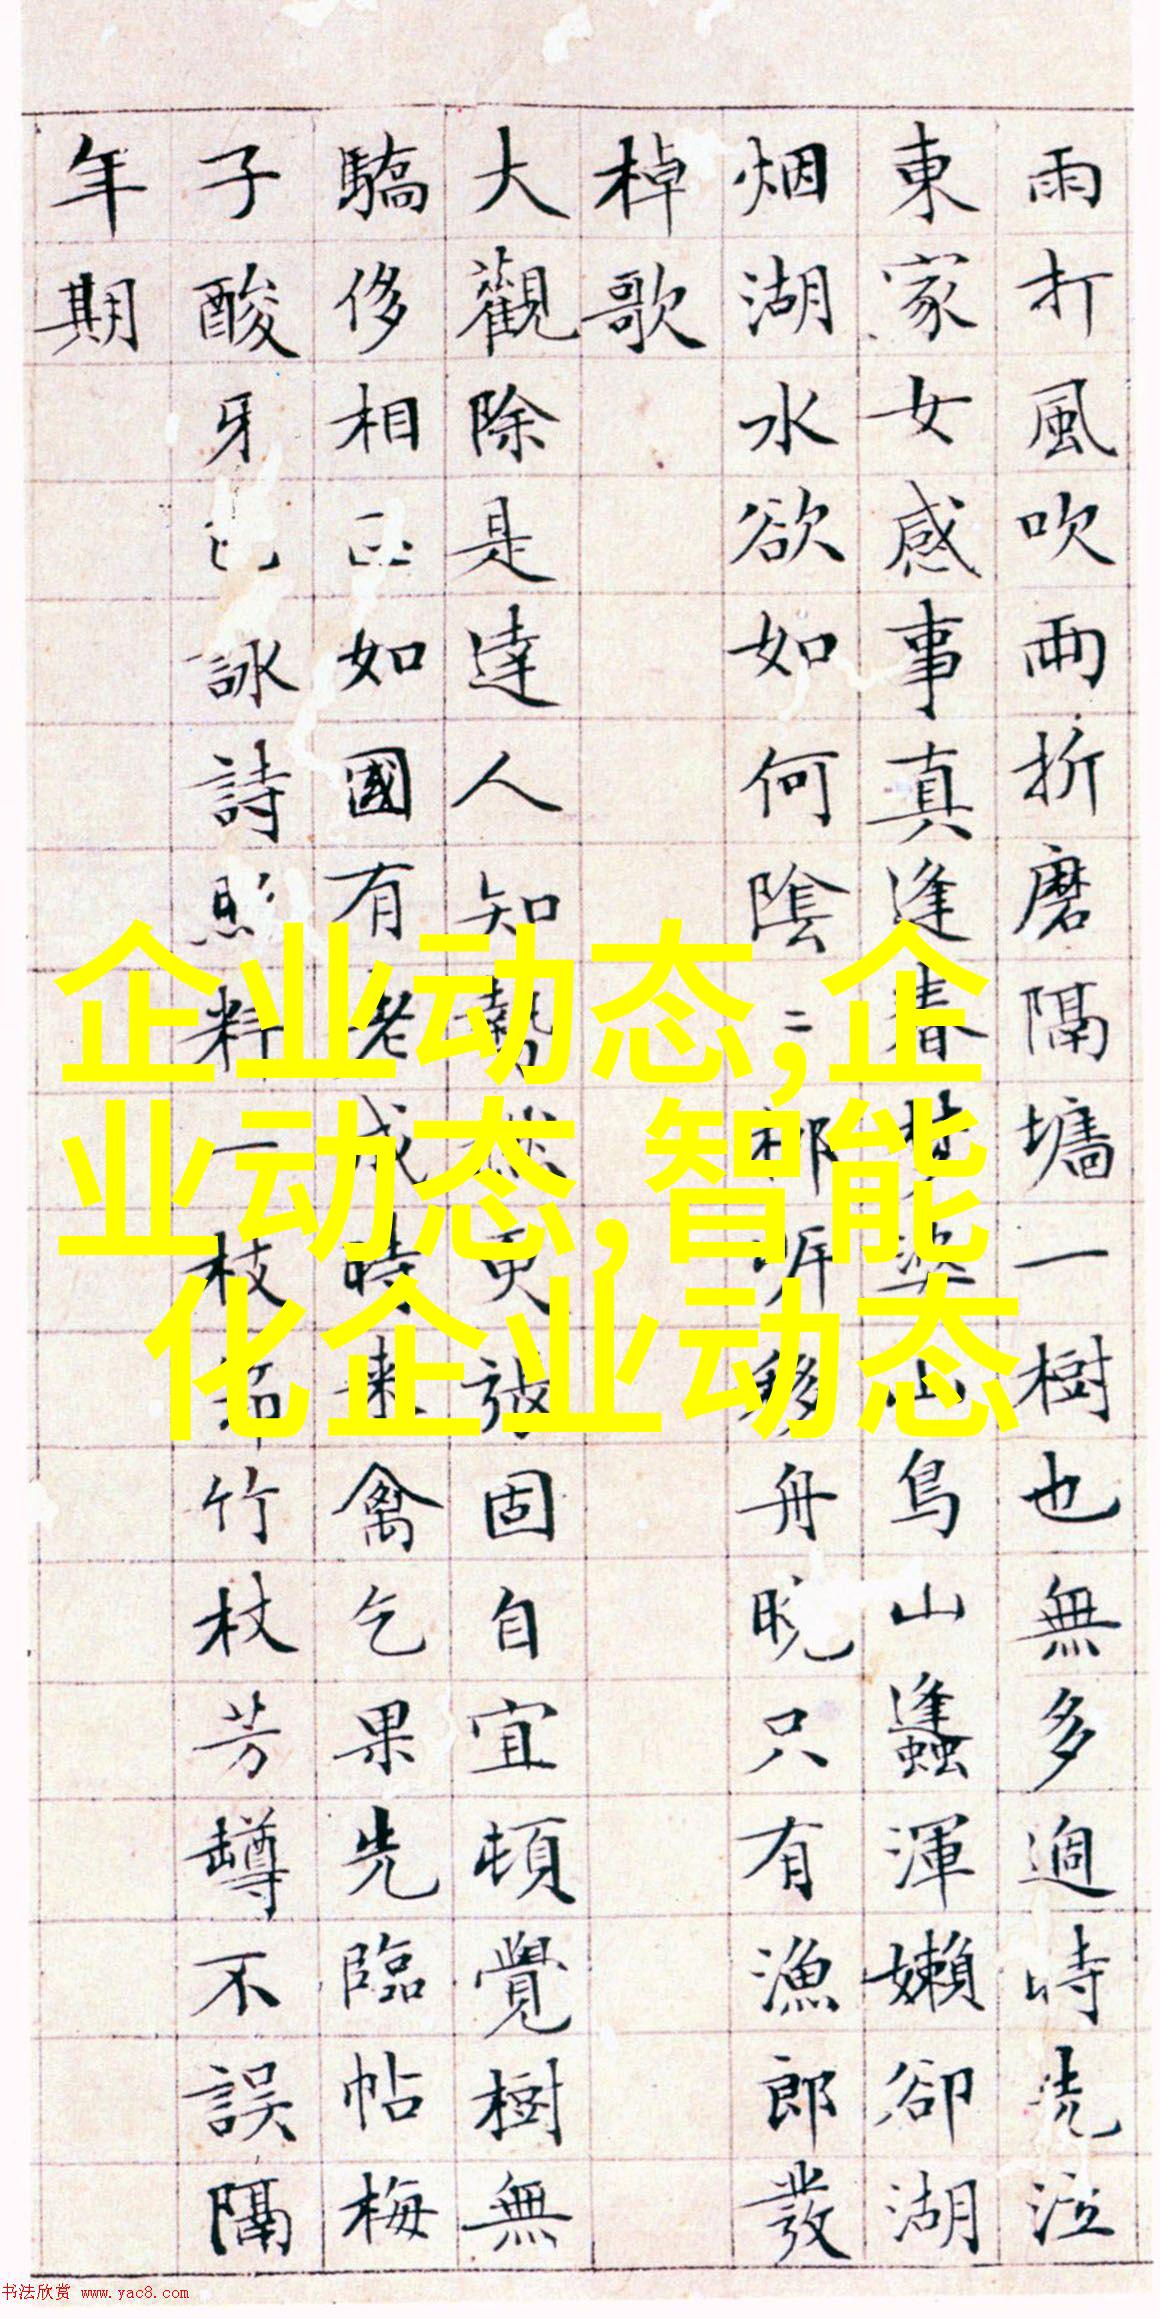 雨打風吹雨折磨隔墻一樹也無多過時洗泣
東家女感事真逢春山鳥山蠭渾嬾卻湖
烟湖水欲如何陰二移舟晚只有漁郎發
棹歌
大觀除是達人知勢更放固自宜頓覺樹無
驕侈相如國有老成時來禽乞果先臨帖梅
子酸牙詠詩照料一枝竹杖芳罇不誤隔
年期
企业动态,企
业动态,智能
化企业动态
书法欣赏 www.yac8.com